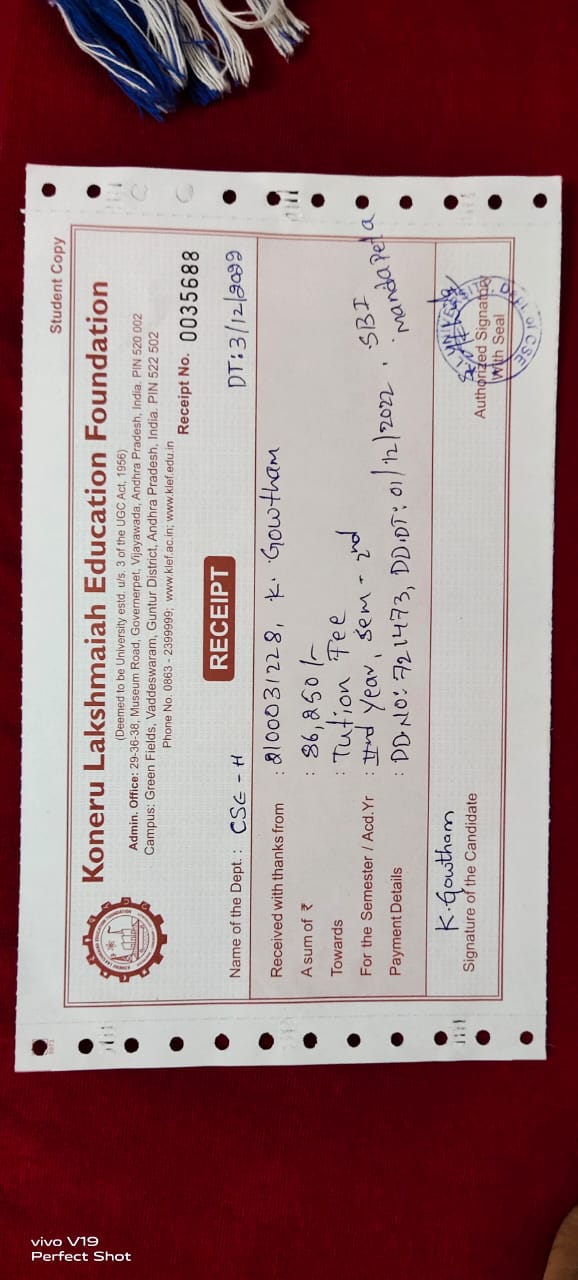 Student Copy
Koneru Lakshmaiah Education Foundation
(Deemed to be University estd. u/s. 3 of the UGC Act, 1956)
Admin. Office: 29-36-38, Museum Road, Governerpet, Vijayawada, Andhra Pradesh, India. PIN 520 002
Campus: Green Fields, Vaddeswaram, Guntur District, Andhra Pradesh, India. PIN 522 502
Phone No. 0863 - 2399999; www.klef.ac.in; www.klef.edu.in
Receipt No. 0035688
RECEIPT
Name of the Dept. : CSE - H DT: 3/12/2022
Received with thanks from : 2100031228, K. Gowtham
A sum of ₹ : 86,250/-
Towards : Tution Fee
For the Semester / Acd.Yr : IInd Year, Sem - 2nd
Payment Details : DD.NO: 721473, DD.DT: 01/12/2022, SBI
Mandapeta
K. Gowtham
Signature of the Candidate
Authorized Signatory
With Seal
DEPT. OF CSE
vivo V19
Perfect Shot